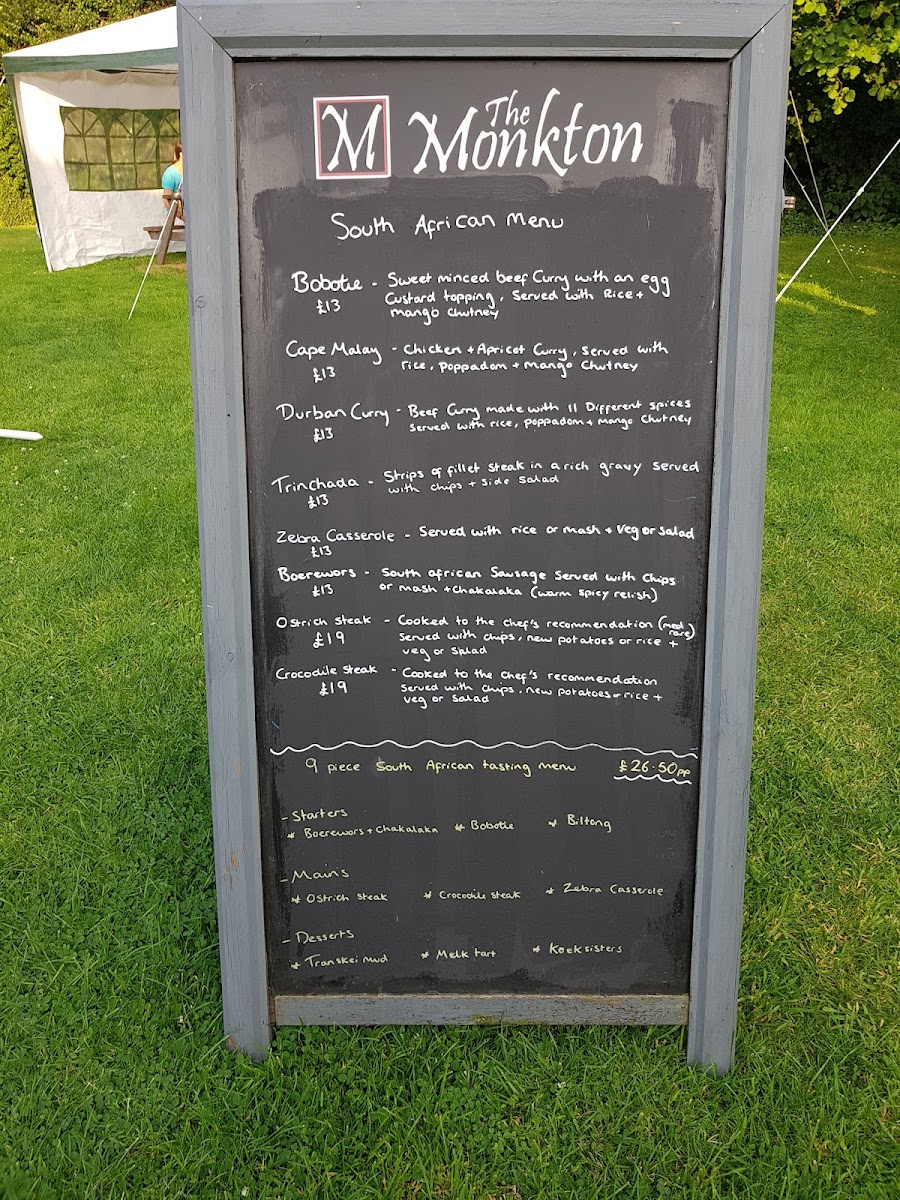 M The Monkton
South African Menu
Bobotie - Sweet minced beef Curry with an egg
£13 Custard topping, Served with Rice +
mango chutney
Cape Malay - Chicken + Apricot Curry, served with
£13 rice, poppadom + mango Chutney
Durban Curry - Beef Curry made with 11 Different spices
£13 Served with rice, poppadom + mango Chutney
Trinchada - Strips of fillet steak in a rich gravy served
£13 with chips + side salad
Zebra Casserole - Served with rice or mash + veg or salad
£13
Boerewors - South african Sausage Served with Chips
£13 or mash + chakalaka (warm spicy relish)
Ostrich steak - Cooked to the chef's recommendation (med rare)
£19 Served with chips, new potatoes or rice +
veg or salad
Crocodile steak - Cooked to the chef's recommendation
£19 Served with chips, new potatoes or rice +
veg or salad
9 piece South African tasting menu £26.50pp
- Starters
* Boerewors + Chakalaka * Bobotie * Biltong
- Mains
* Ostrich steak * Crocodile steak * Zebra Casserole
- Desserts
* Transkei mud * Melk tart * Koeksisters